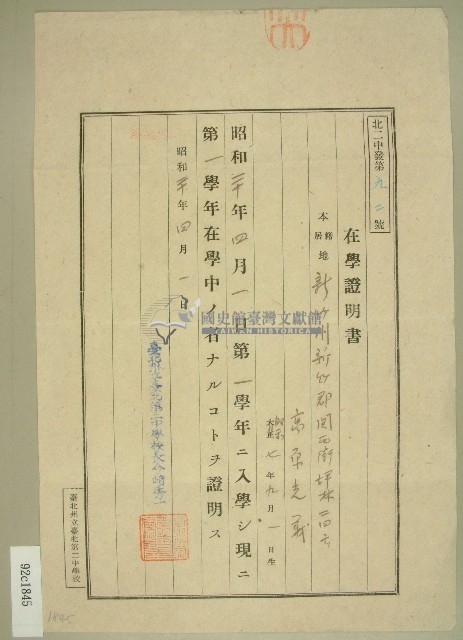 北二中發第九二號
在學證明書
本籍
居地
新竹州新竹郡関西街坪林
高原光
昭和
大正
七年九月一日生
昭和二十年四月一日第一學年ニ入學シ現ニ
第一學年在學中ノ者ナルコトヲ證明ス
昭和二十年四月一日
臺北州立臺北第二中學校長
臺北州立臺北第二中學校
國史館臺灣文獻館
TAIWAN HISTORICA
92c1845
1845